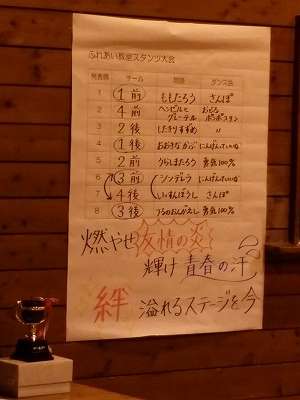 ふれあい教室スタンツ大会
発表順 チーム 物語 ダンス等
1 1前 ももたろう さんぽ
2 4前 ヘンゼルとグレーテル おどるポンポコリン
3 2後 したきりすずめ 〃
4 1後 おおきなかぶ にんげんっていいな
5 2前 うらしまたろう 勇気100%
6 3前 シンデレラ にんげんっていいな
7 4後 いっすんぼうし さんぽ
8 3後 つるのおんがえし 勇気100%
燃やせ 友情の炎
輝け 青春の汗
絆 溢れるステージを今